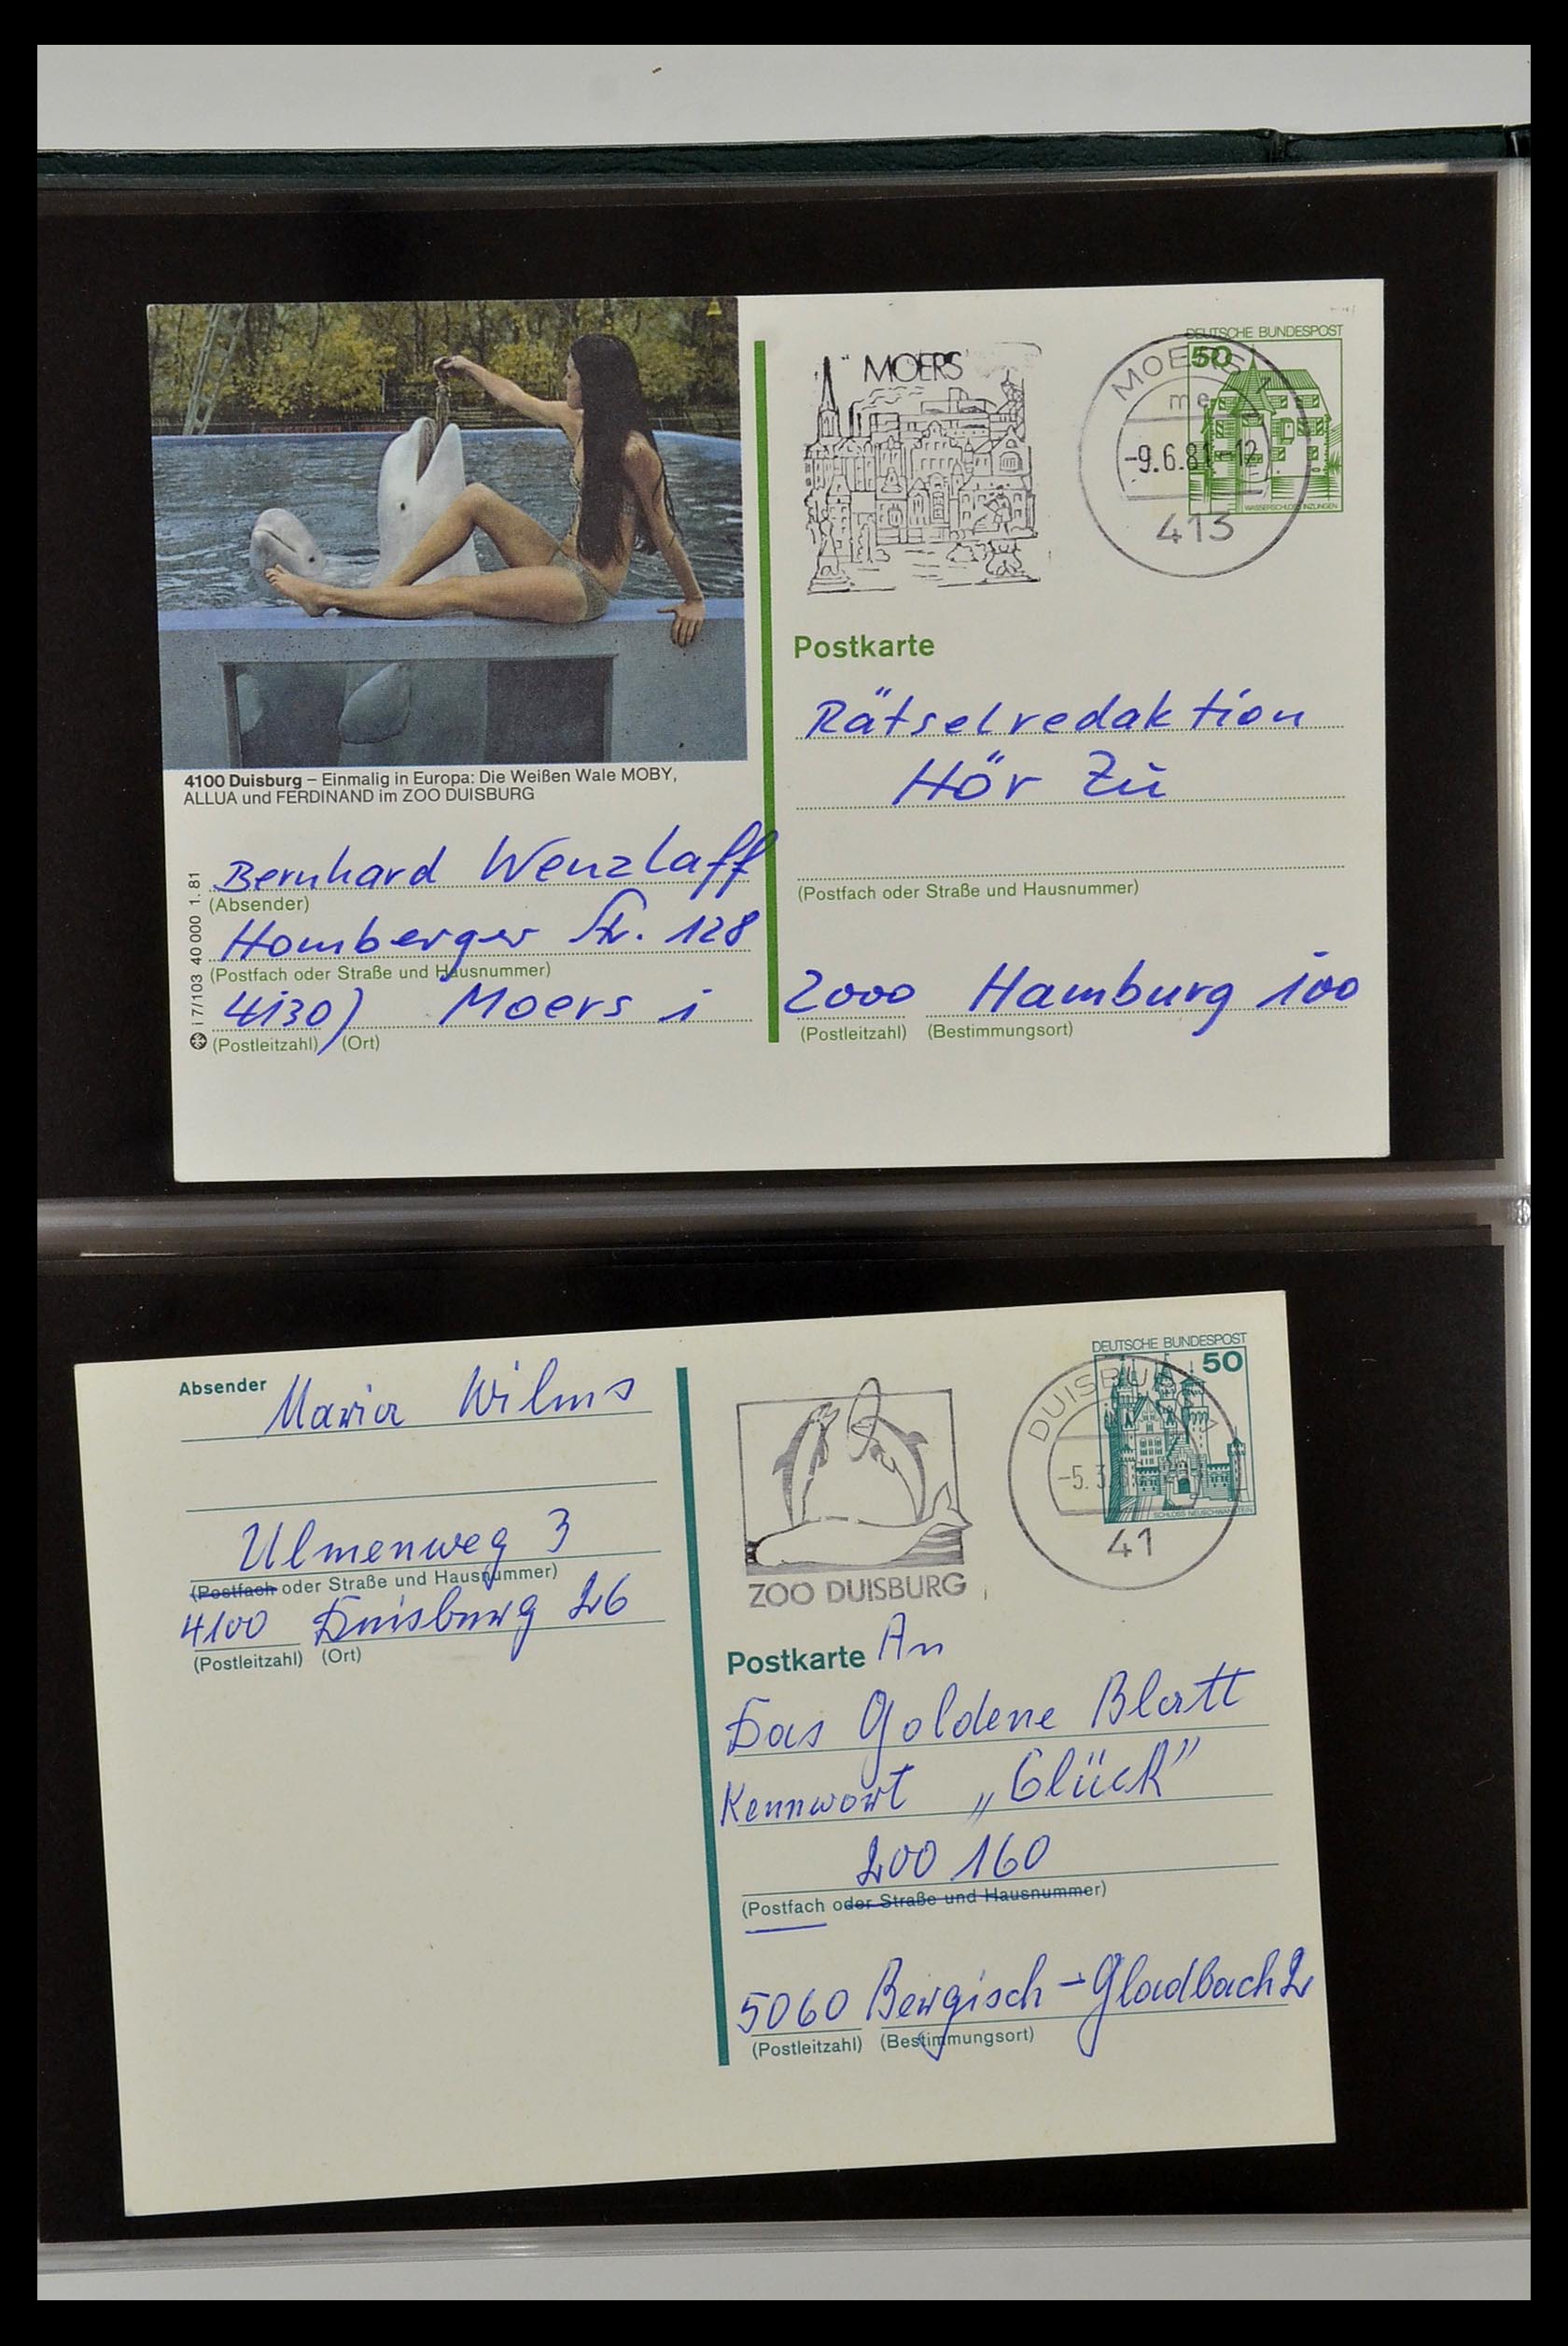 DEUTSCHE BUNDESPOST
50
MOERS
MOERS 1
me
-9.6.81-12
413
Postkarte
Rätselredaktion
Hör Zu
(Postfach oder Straße und Hausnummer)
2000 Hamburg 100
(Postleitzahl) (Bestimmungsort)
4100 Duisburg – Einmalig in Europa: Die Weißen Wale MOBY,
ALLUA und FERDINAND im ZOO DUISBURG
Bernhard Wenzlaff
(Absender)
Homberger Str. 128
(Postfach oder Straße und Hausnummer)
4130) Moers 1
(Postleitzahl) (Ort)
i 7/103 40 000 1.81
Absender Maria Wilms
Ulmenweg 3
(Postfach oder Straße und Hausnummer)
4100 Duisburg 26
(Postleitzahl) (Ort)
DEUTSCHE BUNDESPOST
50
SCHLOSS NEUSCHWANSTEIN
DUISBURG
-5.3
41
ZOO DUISBURG
Postkarte An
Das Goldene Blatt
Kennwort „Glück”
200 160
(Postfach oder Straße und Hausnummer)
5060 Bergisch-Gladbach 2
(Postleitzahl) (Bestimmungsort)